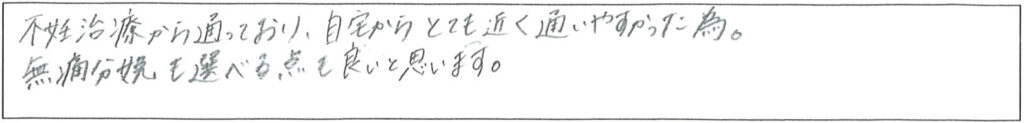 不妊治療から通っており、自宅からとても近く通いやすかった為。
無痛分娩も選べる点も良いと思います。